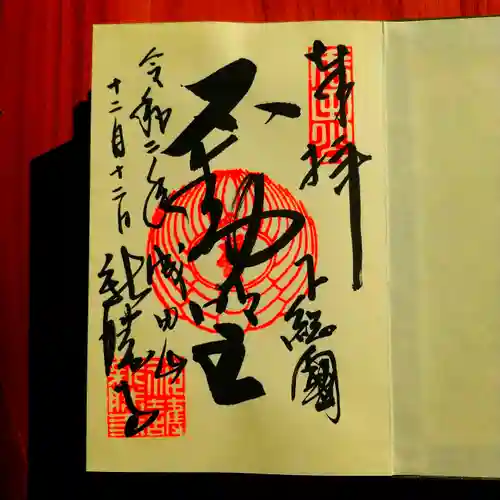 奉拝
下総国
不動明王
成田山
新勝寺
令和二年
十二月十二日